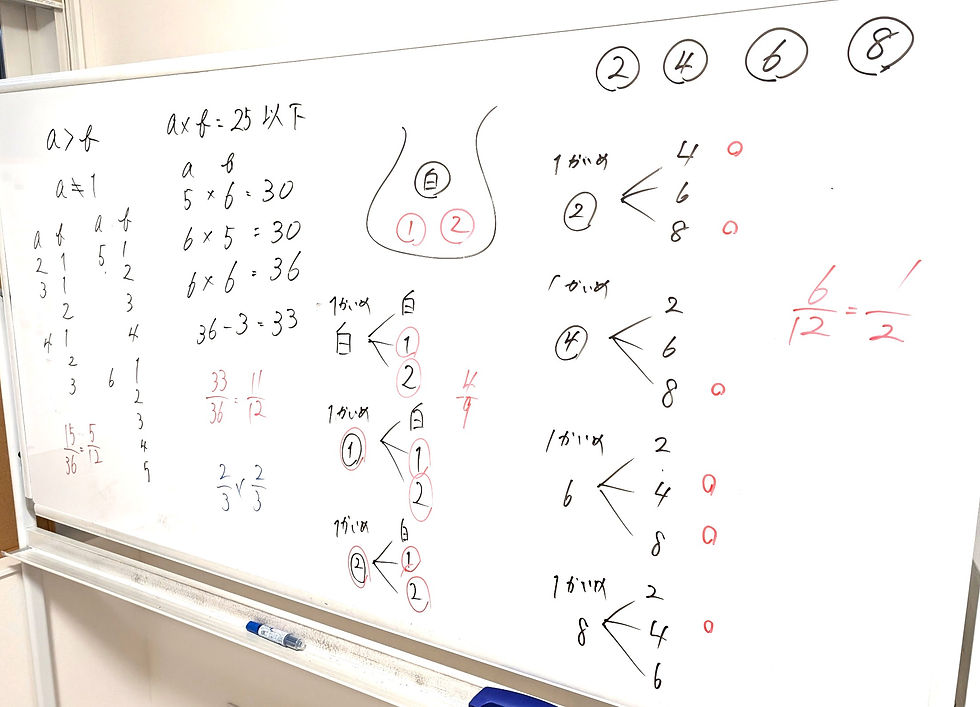 a>b
a≠1
a b
2 1
3 1
2
4 1
2
3
15/36=5/12
a b
5 1
2
3
4
6 1
2
3
4
5
a×b=25以下
a b
5×6=30
6×5=30
6×6=36
36-3=33
33/36=11/12
2/3×2/3
白
① ②
1かいめ
白
白
①
②
1かいめ
①
白
①
②
1かいめ
②
白
①
②
4/9
② ④ ⑥ ⑧
1かいめ
②
4 ○
6
8 ○
1かいめ
④
2
6
8 ○
1かいめ
6
2
4 ○
8 ○
1かいめ
8
2
4 ○
6
6/12=1/2